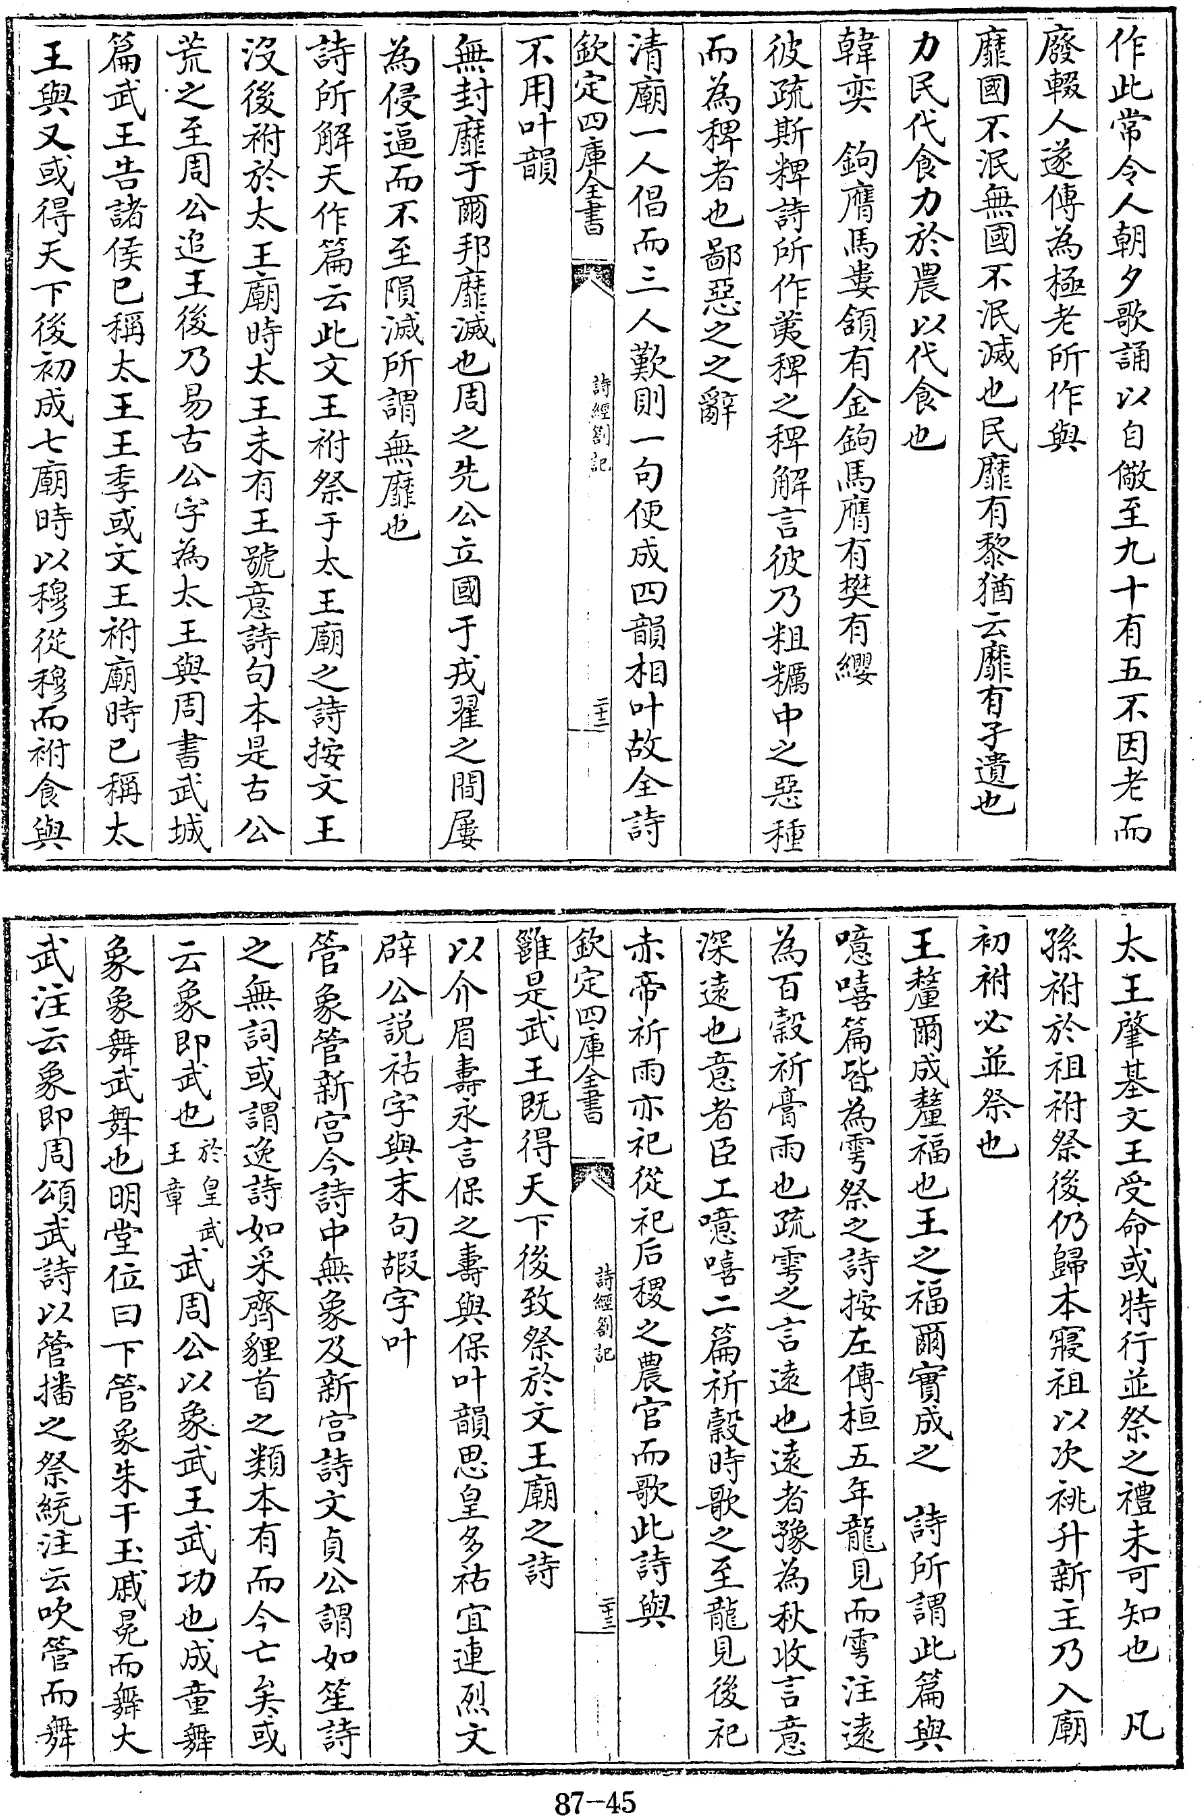 作此常令人朝夕歌誦以自儆至九十有五不因老而
廢輟人遂傳為極老所作與
靡國不泯無國不泯滅也民靡有黎猶云靡有孑遺也
力民代食力於農以代食也
韓奕　鉤膺馬婁頷有金鉤馬膺有樊有纓
彼疏斯粺詩所作荑稗之稗解言彼乃粗糲中之惡種
而為稗者也鄙惡之之辭
清廟一人倡而三人歎則一句便成四韻相叶故全詩
欽定四庫全書　詩經劄記　二十二
不用叶韻
無封靡于爾邦靡滅也周之先公立國于戎翟之間屢
為侵逼而不至隕滅所謂無靡也
詩所解天作篇云此文王祔祭于太王廟之詩按文王
沒後祔於太王廟時太王未有王號意詩句本是古公
荒之至周公追王後乃易古公字為太王與周書武城
篇武王告諸侯已稱太王王季或文王祔廟時已稱太
王與又或得天下後初成七廟時以穆從穆而祔食與
太王肇基文王受命或特行並祭之禮未可知也　凡
孫祔於祖祔祭後仍歸本寢祖以次祧升新主乃入廟
初祔必並祭也
王釐爾成釐福也王之福爾實成之　詩所謂此篇與
噫嘻篇皆為雩祭之詩按左傳桓五年龍見而雩注遠
為百穀祈膏雨也疏雩之言遠也遠者豫為秋收言意
深遠也意者臣工噫嘻二篇祈穀時歌之至龍見後祀
赤帝祈雨亦祀從祀后稷之農官而歌此詩與
欽定四庫全書　詩經劄記　二十三
雝是武王既得天下後致祭於文王廟之詩
以介眉壽永言保之壽與保叶韻思皇多祜宜連烈文
辟公說祜字與末句嘏字叶
管象管新宮今詩中無象及新宮詩文貞公謂如笙詩
之無詞或謂逸詩如采齊貍首之類本有而今亡矣或
云象即武也於皇武王章武周公以象武王武功也成童舞
象象舞武舞也明堂位曰下管象朱干玉戚冕而舞大
武注云象即周頌武詩以管播之祭統注云吹管而舞
87-45